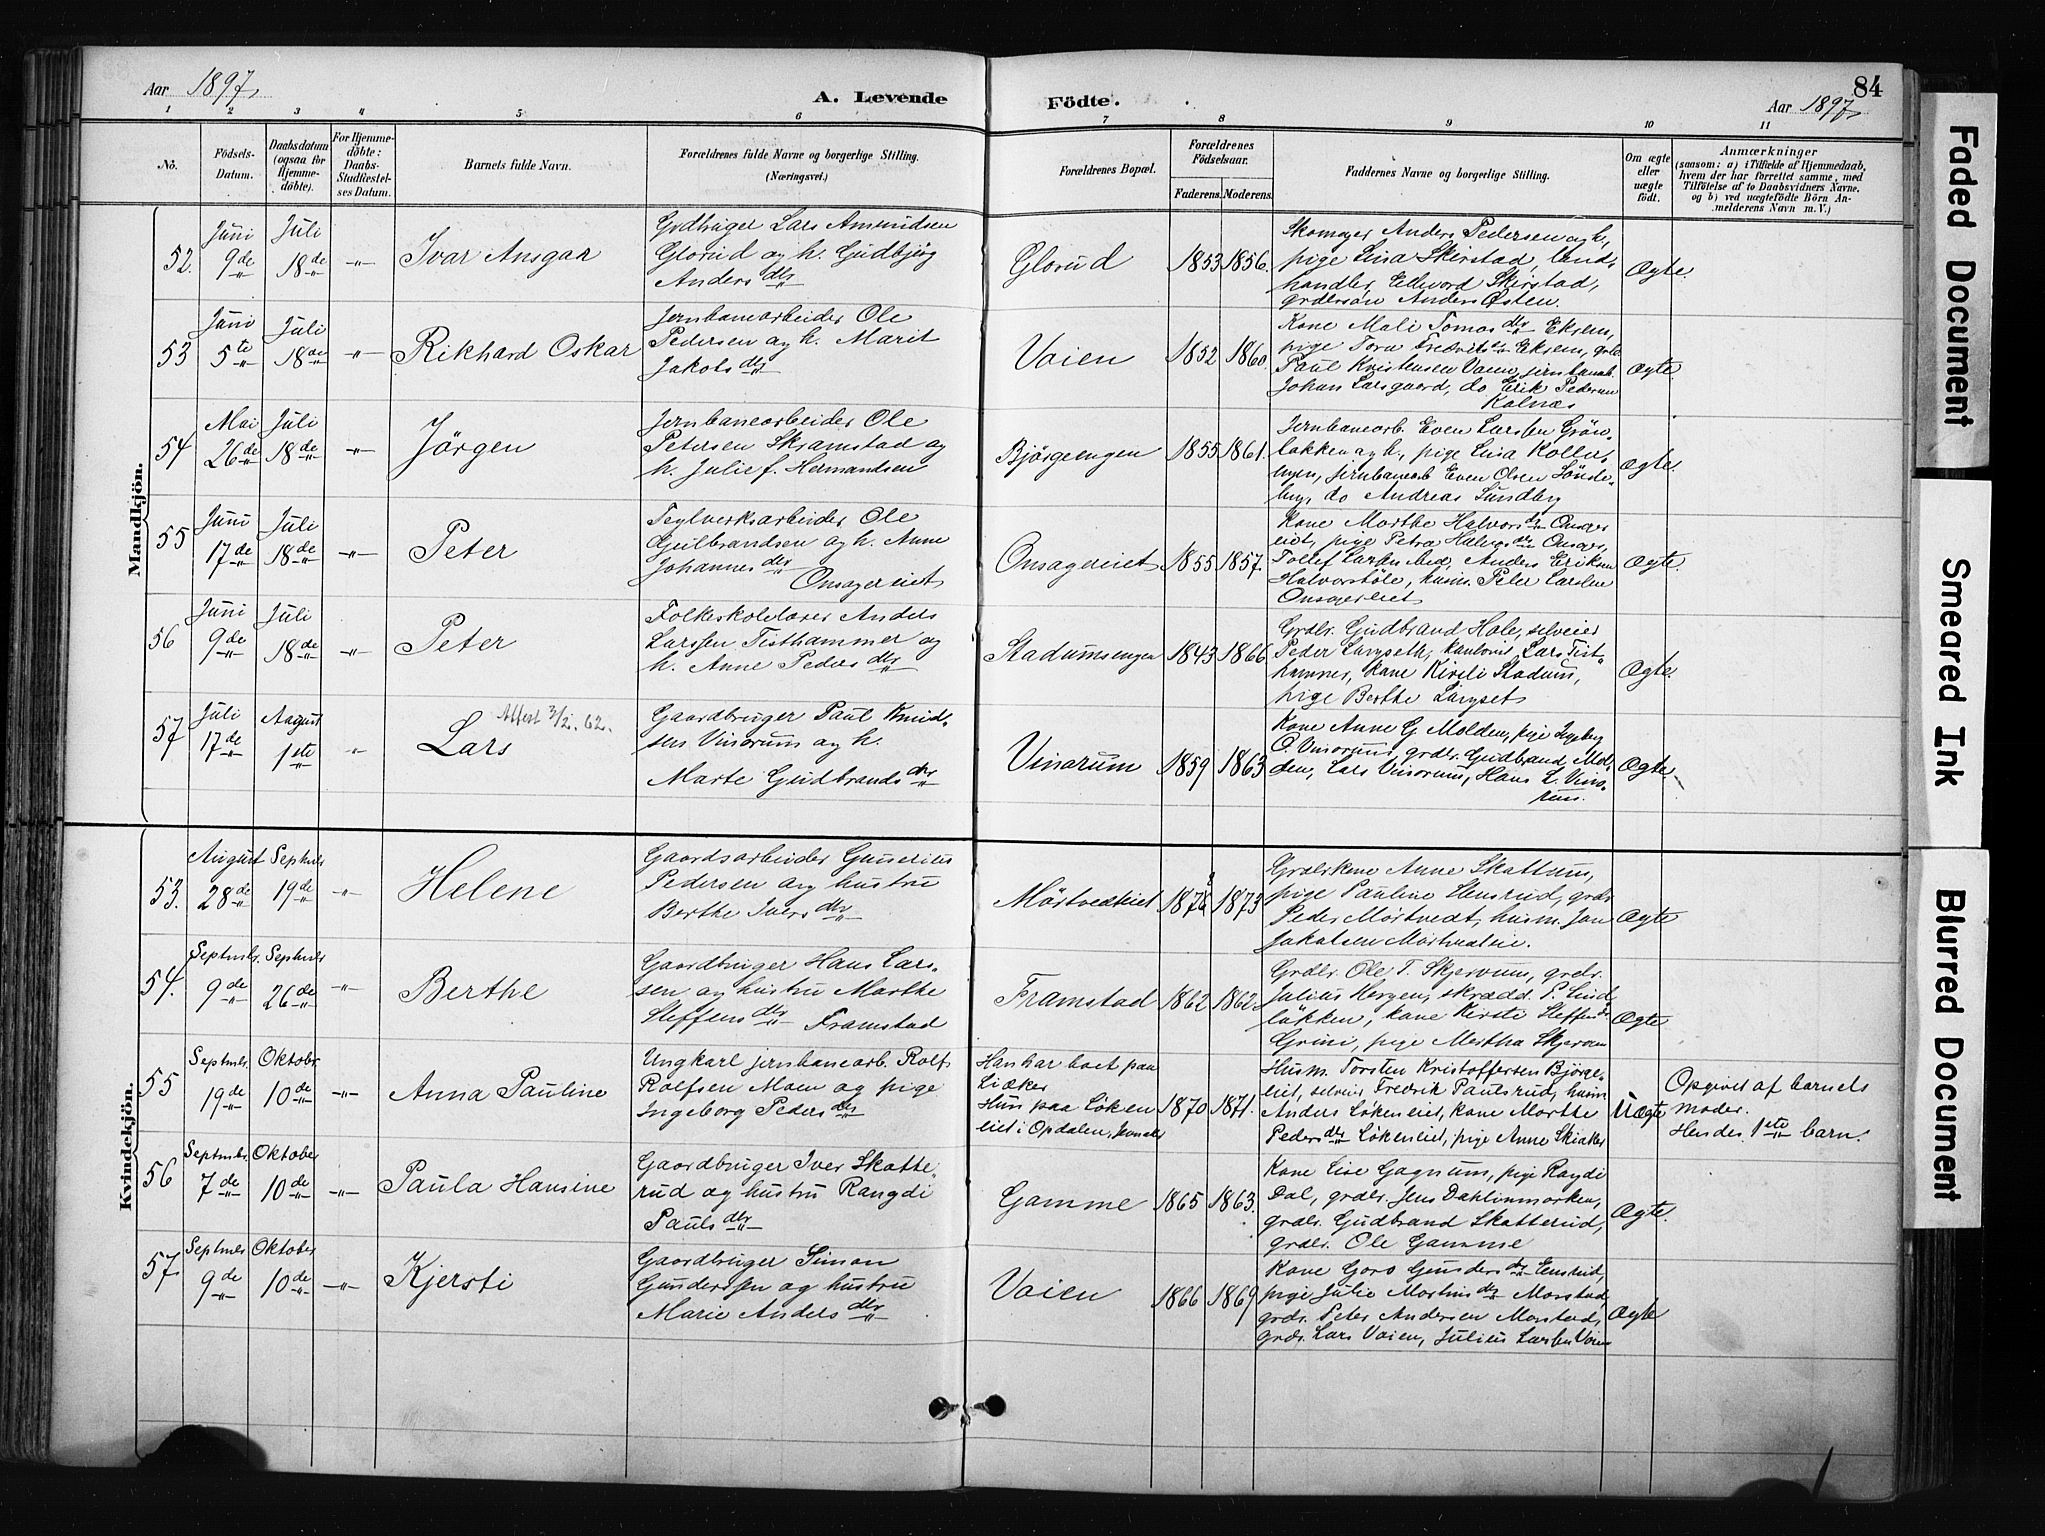 Aar 1897.
A. Levende Födte.
Aar 1897.
84
1 2 3 4 5 6 7 8 9 10 11
No.
Födsels-Datum.
Daabsdatum (ogsaa for Hjemme-döbte).
For Hjemme-döbte: Daabs-Stadfæstel-ses Datum.
Barnets fulde Navn.
Forældrenes fulde Navne og borgerlige Stilling.
(Næringsvei.)
Forældrenes Bopæl.
Forældrenes Födselsaar.
Faderens. Moderens.
Faddernes Navne og borgerlige Stilling.
Om ægte eller uægte födt.
Anmærkninger
(saasom: a) i Tilfælde af Hjemmedaab,
hvem der har forrettet samme, med
Tilföielse af to Daabsvidners Navne.
og b) ved uægtefödte Börn An-
melderens Navn m. V.)
Mandkjön.
52. Juni 9de Juli 18de -"- Ivar Ansgar
Grdbruger Lars Amundsen
Glorud og h. Gudbjög
Andersdtr
Glorud 1853 1856.
Skomager Anders Pedersen og h,
pige Lina Skirstad, land-
handler Edevard Skirstad,
grdersön Anders Østen.
Ægte.
53 Juni 5te Juli 18de -"- Rikhard Oskar
Jernbanearbeider Ole
Pedersen og h. Marit
Jakobsdtr
Vaien 1852 1860.
Kone Mali Tomasdtr Eksem,
pige Torn Eksem,
Paul Kristensen Vaien,
Johan Larsgaard, do Erik Pedersen
Kalnæs
Ægte.
54 Mai 26de Juli 18de -"- Jörgen
Jernbanearbeider Ole
Petersen Skramstad og
h. Julie f. Hermandsen
Bjørgeengen 1855 1861.
Jernbanearb Even Larsen Grön-
lökken og h, pige Lina Kolle-
engen, jernbanearb Even Olsen Sönde-
by, do Andreas Sundby
Ægte.
55 Juni 17de Juli 18de -"- Peter
Teglverksarbeider Ole
Gulbrandsen og h. Anne
Johannesdtr
Onsagereiet
Onsagereiet 1855 1857.
Kone Marthe Halvorsdtr Onsager
eiet, pige Petra Onsager,
Tollef Larsen Anders Eriksen
Halvorstöle, husm. Peter Larsen
Onsagereiet
Ægte.
56 Juni 9de Juli 18de -"- Peter
Folkeskolelærer Anders
Larssen Tisthammer og
h. Anne Pedersdtr
Stadumsengen 1843 1866
Grdbr. Gudbrand Hole, selveier
Peder Langseth, Lars Tist-
hammer, kone Kirsti Stadum,
pige Berthe Langset
Ægte.
57 Juli 17de August 1ste " Lars
Attest 3/2. 62.
Gaardbruger Paul Knud-
sen Vinorum og h.
Marte Gudbrandsdtr
Vinorum 1859 1863
Kone Anne G Molden, pige Ingeborg
O. Vinorum, grdbr. Gudbrand Mol-
den, Lars Vinorum, Hans L. Vino-
rum.
Ægte
Kvindekjön.
53. August 28de Septmbr 19de -"- Helene
Gaardsarbeider Gunerius
Pedersen og hustru
Berthe Iversdtr
Mörtvedteiet 187 1873
Grdbrkone Anne Skattum,
pige Pauline Hensrud, grdbr
Peder Mörtvedt, husm. Jon
Jakobsen Mörtvedteie.
Ægte
54. Septmbr. 9de Septmbr 26de -"- Berthe
Gaardbruger Hans Lars-
sen og hustru Marthe
Steffensdtr Framstad
Framstad 1862 1862.
Grdbr. Ole T. Skjervum, grdbr.
Julius Hergen, skrædd. P. Lind-
lökken, kone Kirsti Steffensdtr
Grini, pige Mertha Skjervum
Ægte
55 Septmbr. 19de Oktober 10de -"- Anna Pauline
Ungkarl jernbanearb. Rolf
Rolfsen Moen og pige
Ingeborg Pedersdtr
Han har boet paa
Liaker
Hun paa Löken
eiet i Opdalen, Jevnaker
1870 1871.
Husm. Torsten Kristoffersen Björge-
eiet, selveier Fredrik Paulsrud, husm
Anders Lökeneiet, kone Marthe
Pedersdtr Lökeneiet, pige Anne Skiaker
Uægte
Opgivet af barnets
moder.
Hendes 1ste barn.
56 Septmbr. 7de Oktober 10de -"- Paula Hansine
Gaardbruger Iver Skatte-
rud og hustru Rangdi
Paulsdtr
Gamme 1865 1863.
Kone Lise Gagnum, pige Ragdi
Dal, grdbr. Jens Dahlinmarken,
grdbr. Gudbrand Skatterud,
grdbr. Ole Gamme
Ægte.
57 Septmbr 9de Oktober 10de -"- Kjersti
Gaardbruger Simon
Gunderssen og hustru
Marie Andersdtr
Vaien 1866 1869
Kone Goro Gundersdtr Ensrud,
pige Julie Mortinsdtr Morstad,
grdr. Peter Andersen Morstad,
grdr. Lars Vaien, Julius Larsen Vaien
Ægte
Faded Document
Smeared Ink
Blurred Document